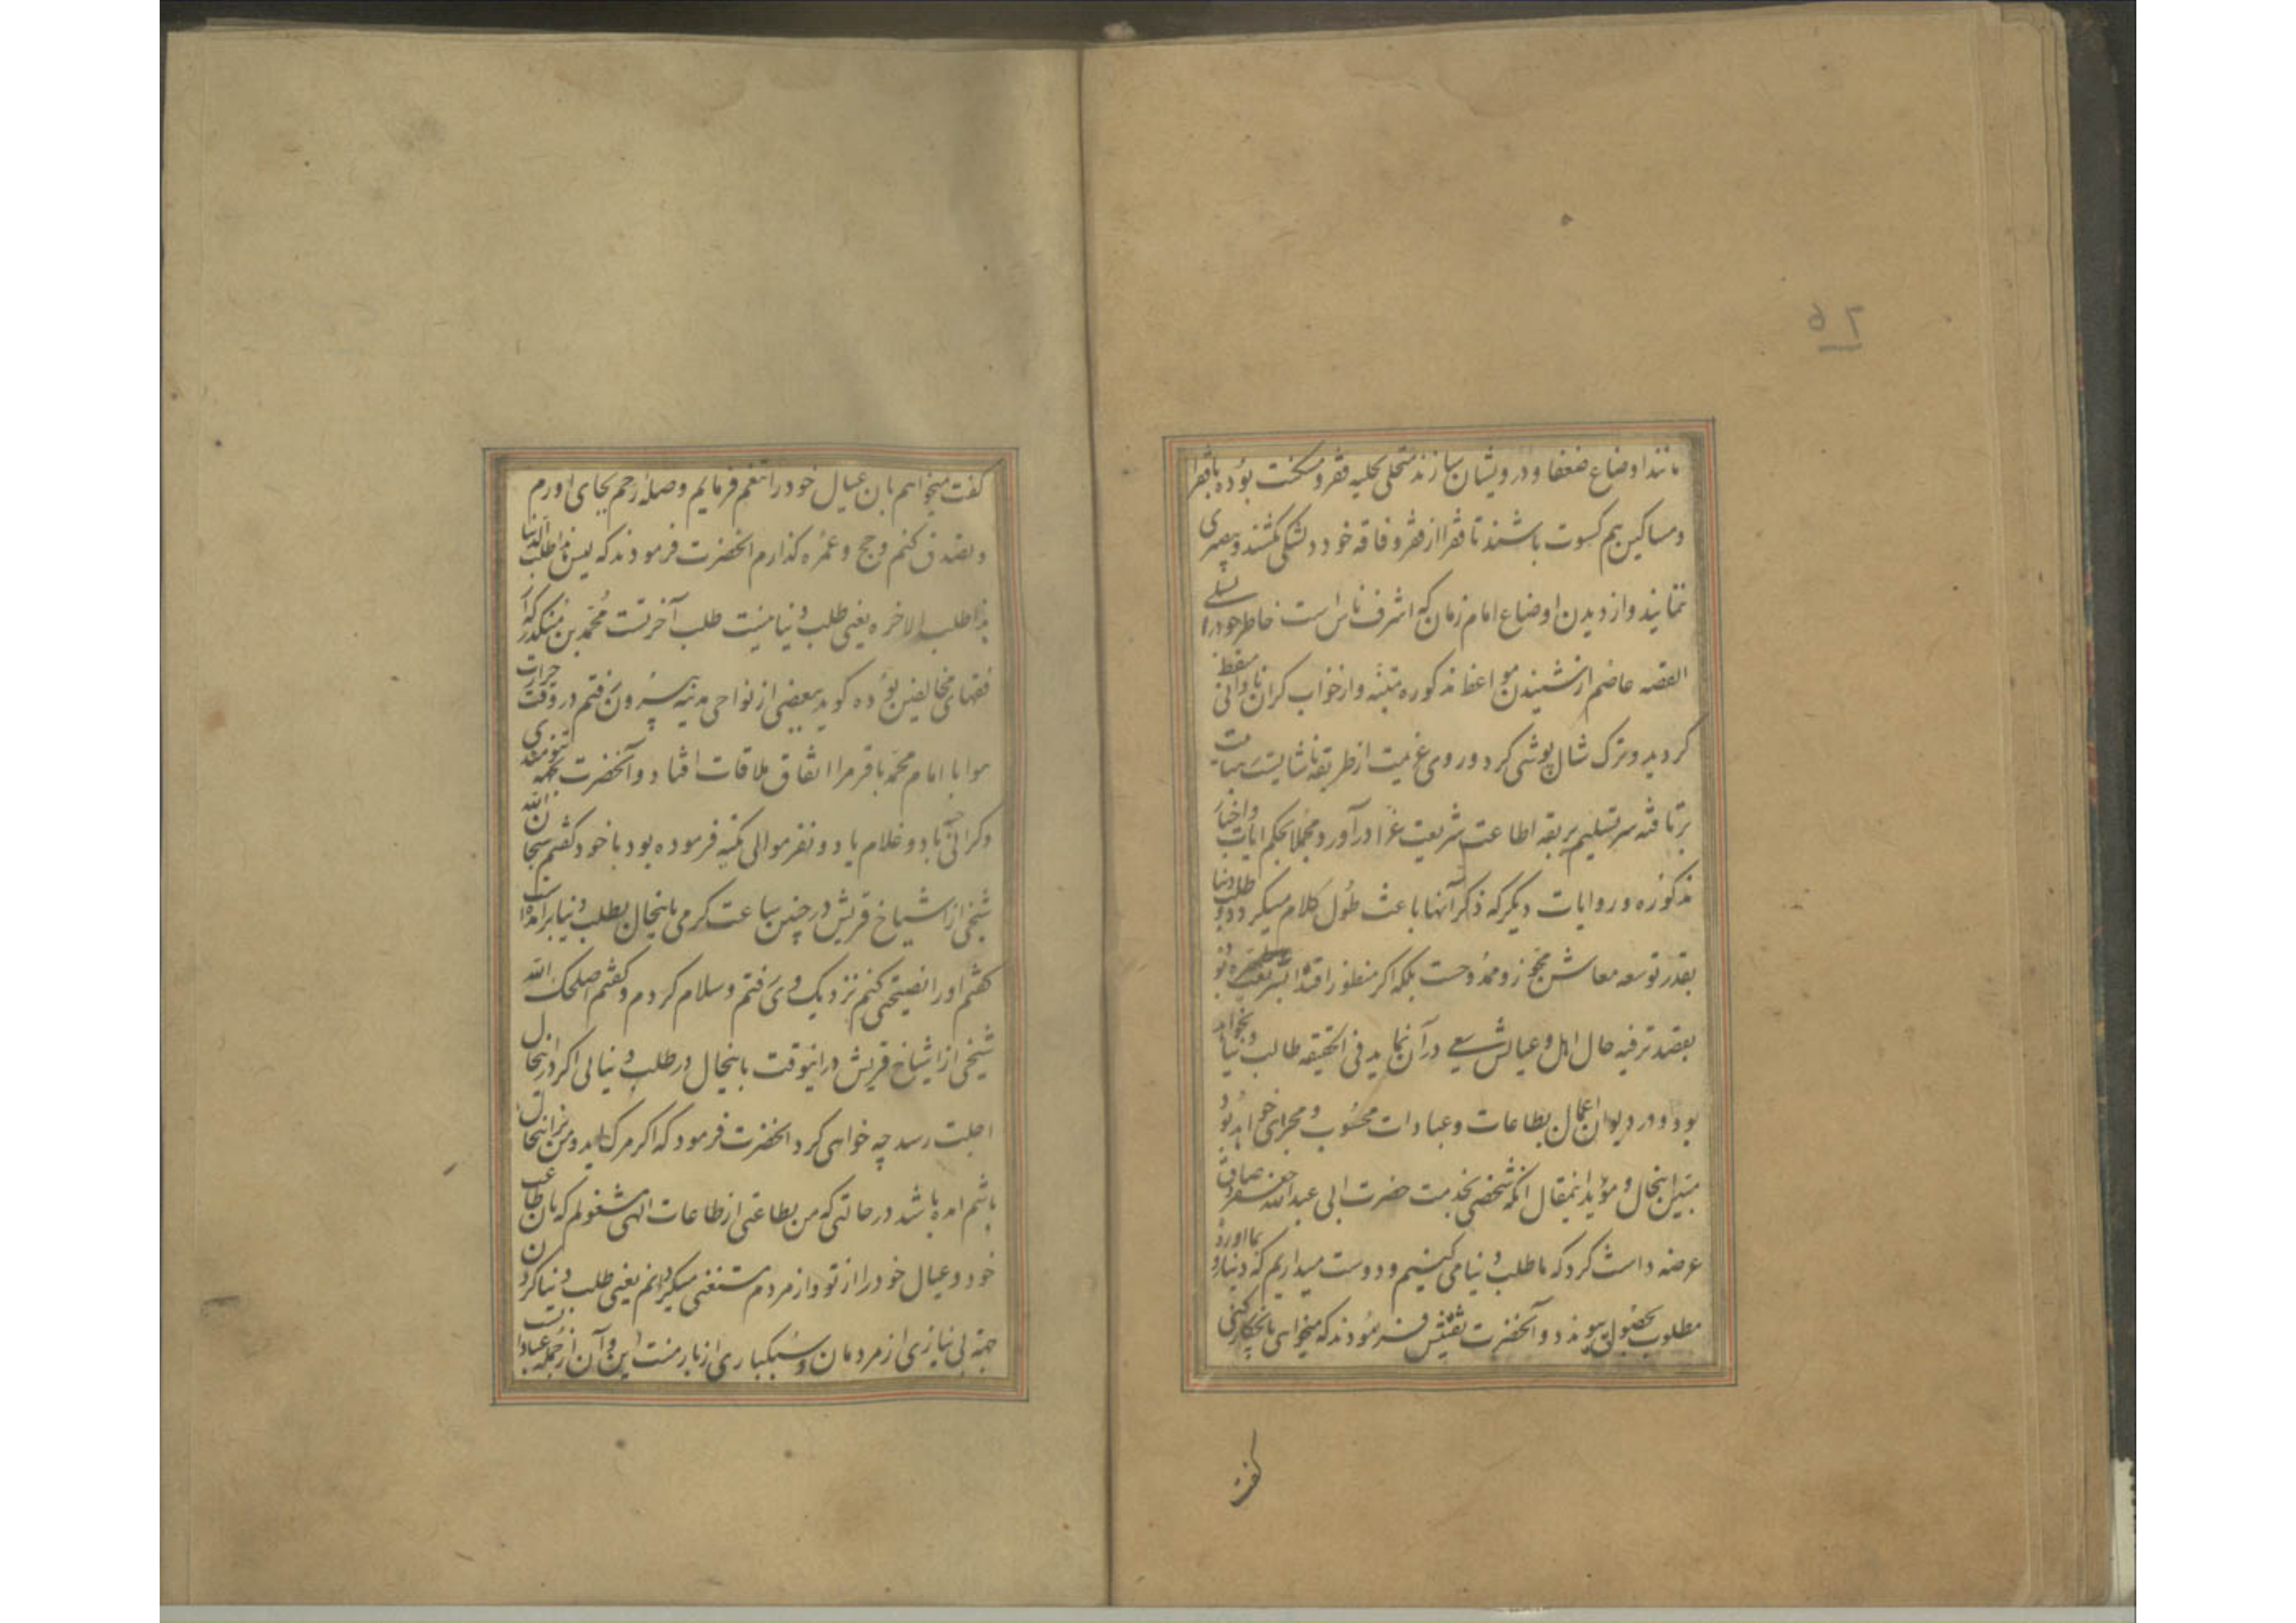 مانند اوضاع ضعفا و درویشان سازند متحلی بحلیه فقر و مسکنت بوده با فقرا
و مساکین هم کسوت باشند تا فقرا از فقر و فاقه خود دلتنگی نکشند و بیصبری
ننمایند و از دیدن اوضاع امام زمان که اشرف ناس است خاطر خود را تسلی
القصه عاصم از شنیدن مواعظ مذکوره متنبه و از خواب گران نادانی متیقظ
کردید و ترک شال پوشی کرد و روی عزیمت از طریقه ناشایست
برتافته سر تسلیم بربقه اطاعت شریعت غرا در آورد مجملا بحکم ایات و اخبار
مذکوره و روایات دیکر که ذکر آنها باعث طول کلام میکردد طلب دنیا
بقدر توسعه معاش مجوز و ممدوحست بلکه اکر منظور اقتدا بشریعت بوده
بقصد ترفیه حال اهل و عیالش سعی در آن نماید فی الحقیقه طالب دنیا نخواهد
بود و در دیوان اعمال بطاعات و عبادات محسوب و مجرای خواهد بود
مبین اینحال و مؤید اینمقال انکه شخصی بخدمت حضرت ابی عبدالله جعفر صادق
عرضه داشت کرد که ما طلب دنیا می کنیم و دوست میداریم که دنیا رو بما اورد
مطلوب بحصول پیوندد و آنحضرت تفتیش فرمودند که میخواهی با آن چکار کنی
کفت
کفت میخواهم بان عیال خود را تنعم فرمایم و صلهٔ رحم بجای اورم
و تصدق کنم و حج و عمره کذارم انحضرت فرمودند که لیس هذا طلب الدنیا
هذا طلب الاخره یعنی طلب دنیا نیست طلب آخرتست محمد بن منکدر که از
فقهای مخالفین بوده کوید ببعضی از نواحی مدینه بیرون رفتم در وقت حرارت
هوا با امام محمد باقر مرا اتفاق ملاقات افتاد و آنحضرت بجهة تنومندی
و کرانی با دو غلام یا دو نفر موالی تکیه فرموده بود با خود کفتم سبحان الله
شیخی از اشیاخ قریش در چنین ساعت کرمی باینحال بطلب دنیا برامده است
کفتم او را نصیحتی کنم نزدیک وی رفتم و سلام کردم و کفتم اصلحک الله
شیخی از اشیاخ قریش در اینوقت باینحال در طلب دنیائی اکر در اینحال
اجلت رسد چه خواهی کرد انحضرت فرمود که اکر مرک اید و من بر اینحال
باشم امده باشد در حالتی که من بطاعتی از طاعات الهی مشغولم که بان طاعت
خود و عیال خود را از تو و از مردم مستغنی میکردانم یعنی طلب دنیا کردن
جهة بی نیازی از مردمان و سبکباری از بار منت است و آن از جمله عباداتست